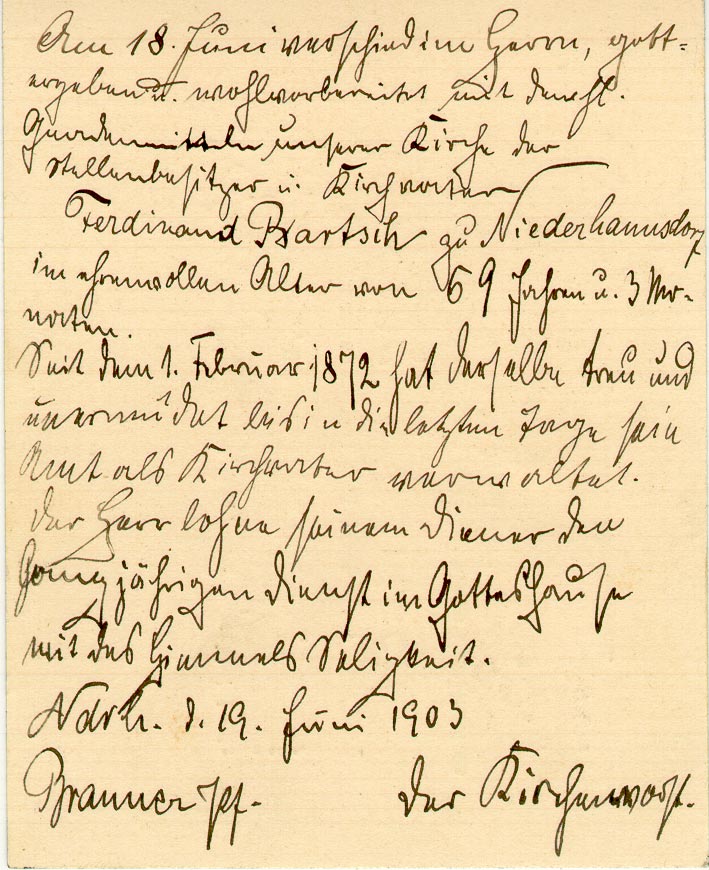 Am 18. Juni verschied im Herrn, gott-
ergeben u. wohlvorbereitet mit den hl.
Gnadenmitteln unserer Kirche der
Stellenbesitzer u. Kirchvater
Ferdinand Bartsch zu Niederhannsdorf
im ehrenvollen Alter von 69 Jahren u. 3 Mo-
naten.
Seit dem 1. Februar 1872 hat derselbe treu und
unermüdet bis in die letzten Tage sein
Amt als Kirchvater verwaltet.
Der Herr lohne seinem Diener den
jährigen Dienst im Gotteshause
mit des Himmels Seligkeit.
Ndrh. d. 19. Juni 1903
Brauner Pf. Der Kirchenvorst.